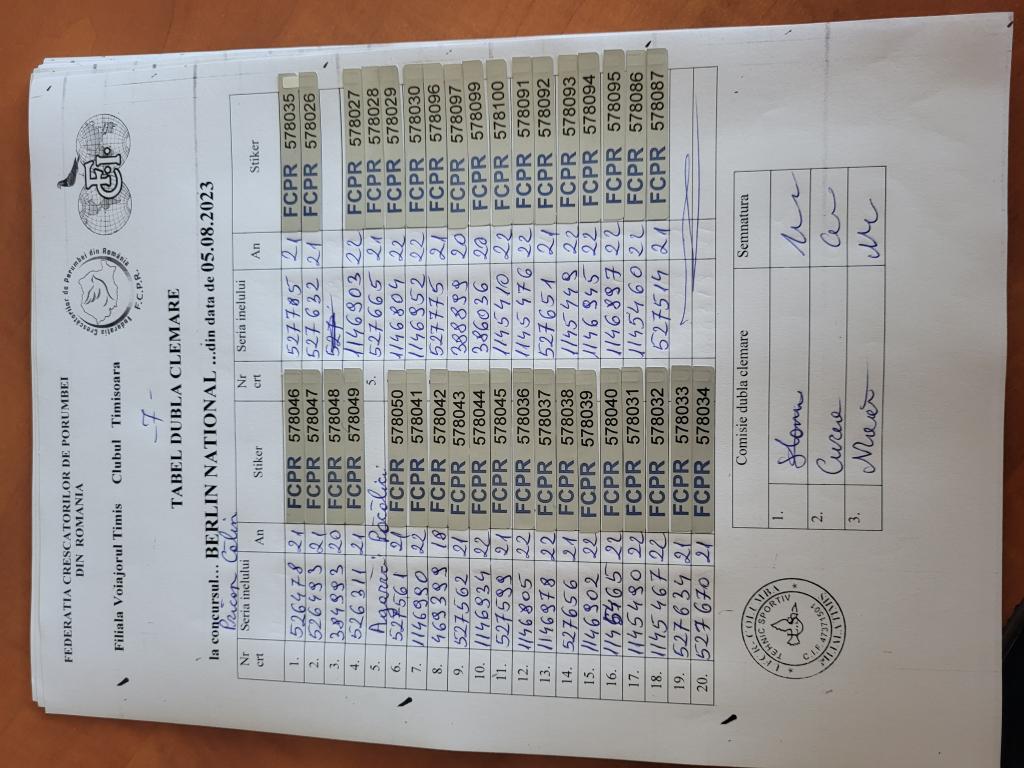 FEDERATIA CRESCATORILOR DE PORUMBEI
DIN ROMANIA
Filiala Voiajorul Timis Clubul Timisoara
Federatia Crescatorilor de Porumbei din Romania
F.C.P.R.
FCI
- 7 -
TABEL DUBLA CLEMARE
la concursul... BERLIN NATIONAL ...din data de 05.08.2023
Călin
Nr crt Seria inelului An Stiker Nr crt Seria inelului An Stiker
1. 526478 21 FCPR 578046 527785 21 FCPR 578035
2. 526493 21 FCPR 578047 527632 21 FCPR 578026
3. 384993 20 FCPR 578048 527
4. 526311 21 FCPR 578049 1146903 22 FCPR 578027
5. Pocolici 5. 527665 21 FCPR 578028
6. 527561 21 FCPR 578050 1146804 22 FCPR 578029
7. 1146990 22 FCPR 578041 1146952 22 FCPR 578030
8. 469399 18 FCPR 578042 527775 21 FCPR 578096
9. 527562 21 FCPR 578043 388899 20 FCPR 578097
10. 1146934 22 FCPR 578044 386036 20 FCPR 578099
11. 527599 21 FCPR 578045 1145410 22 FCPR 578100
12. 1146805 22 FCPR 578036 1145476 22 FCPR 578091
13. 1146978 22 FCPR 578037 527651 21 FCPR 578092
14. 527656 21 FCPR 578038 1145449 22 FCPR 578093
15. 1146902 22 FCPR 578039 1146945 22 FCPR 578094
16. 1145465 22 FCPR 578040 1146897 22 FCPR 578095
17. 1145490 22 FCPR 578031 1145460 22 FCPR 578086
18. 1145467 22 FCPR 578032 527514 21 FCPR 578087
19. 527634 21 FCPR 578033
20. 527670 21 FCPR 578034
Comisie dubla clemare Semnatura
1.
2.
3.
TEHNIC SPORTIV